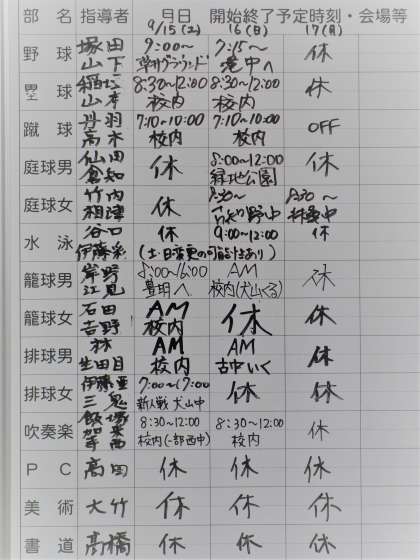 部名 指導者 月日 開始終了予定時刻・会場等
9/15(土) 16(日) 17(月)
野球 塚田 9:00〜 7:15〜 休
山下 グラウンド 滝中へ
塁球 8:30〜12:00 8:30〜12:00 休
山本 校内 校内
蹴球 丹羽 7:10〜10:00 7:10〜10:00 OFF
高木 校内 校内
庭球男 仙田 休 8:00〜12:00 休
倉知 緑地公園
庭球女 竹内 休 8:30〜 8:30〜
相津 野中 中
水泳 谷口 休 9:00〜12:00 休
伊藤彩 (土・日変更の可能性あり)
籠球男 岸野 8:00〜16:00 AM 休
江見 豊明へ 校内(犬山くる)
籠球女 石田 AM 休 休
吉野 校内
排球男 林 AM AM 休
生田目 校内 古中いく
排球女 伊藤 7:00〜17:00 休 休
三鬼 新人戦 犬山中
吹奏楽 飯塚 8:30〜12:00 8:30〜12:00 休
加来 校内(一部西中) 校内
PC 高田 休 休 休
美術 大竹 休 休 休
書道 高橋 休 休 休